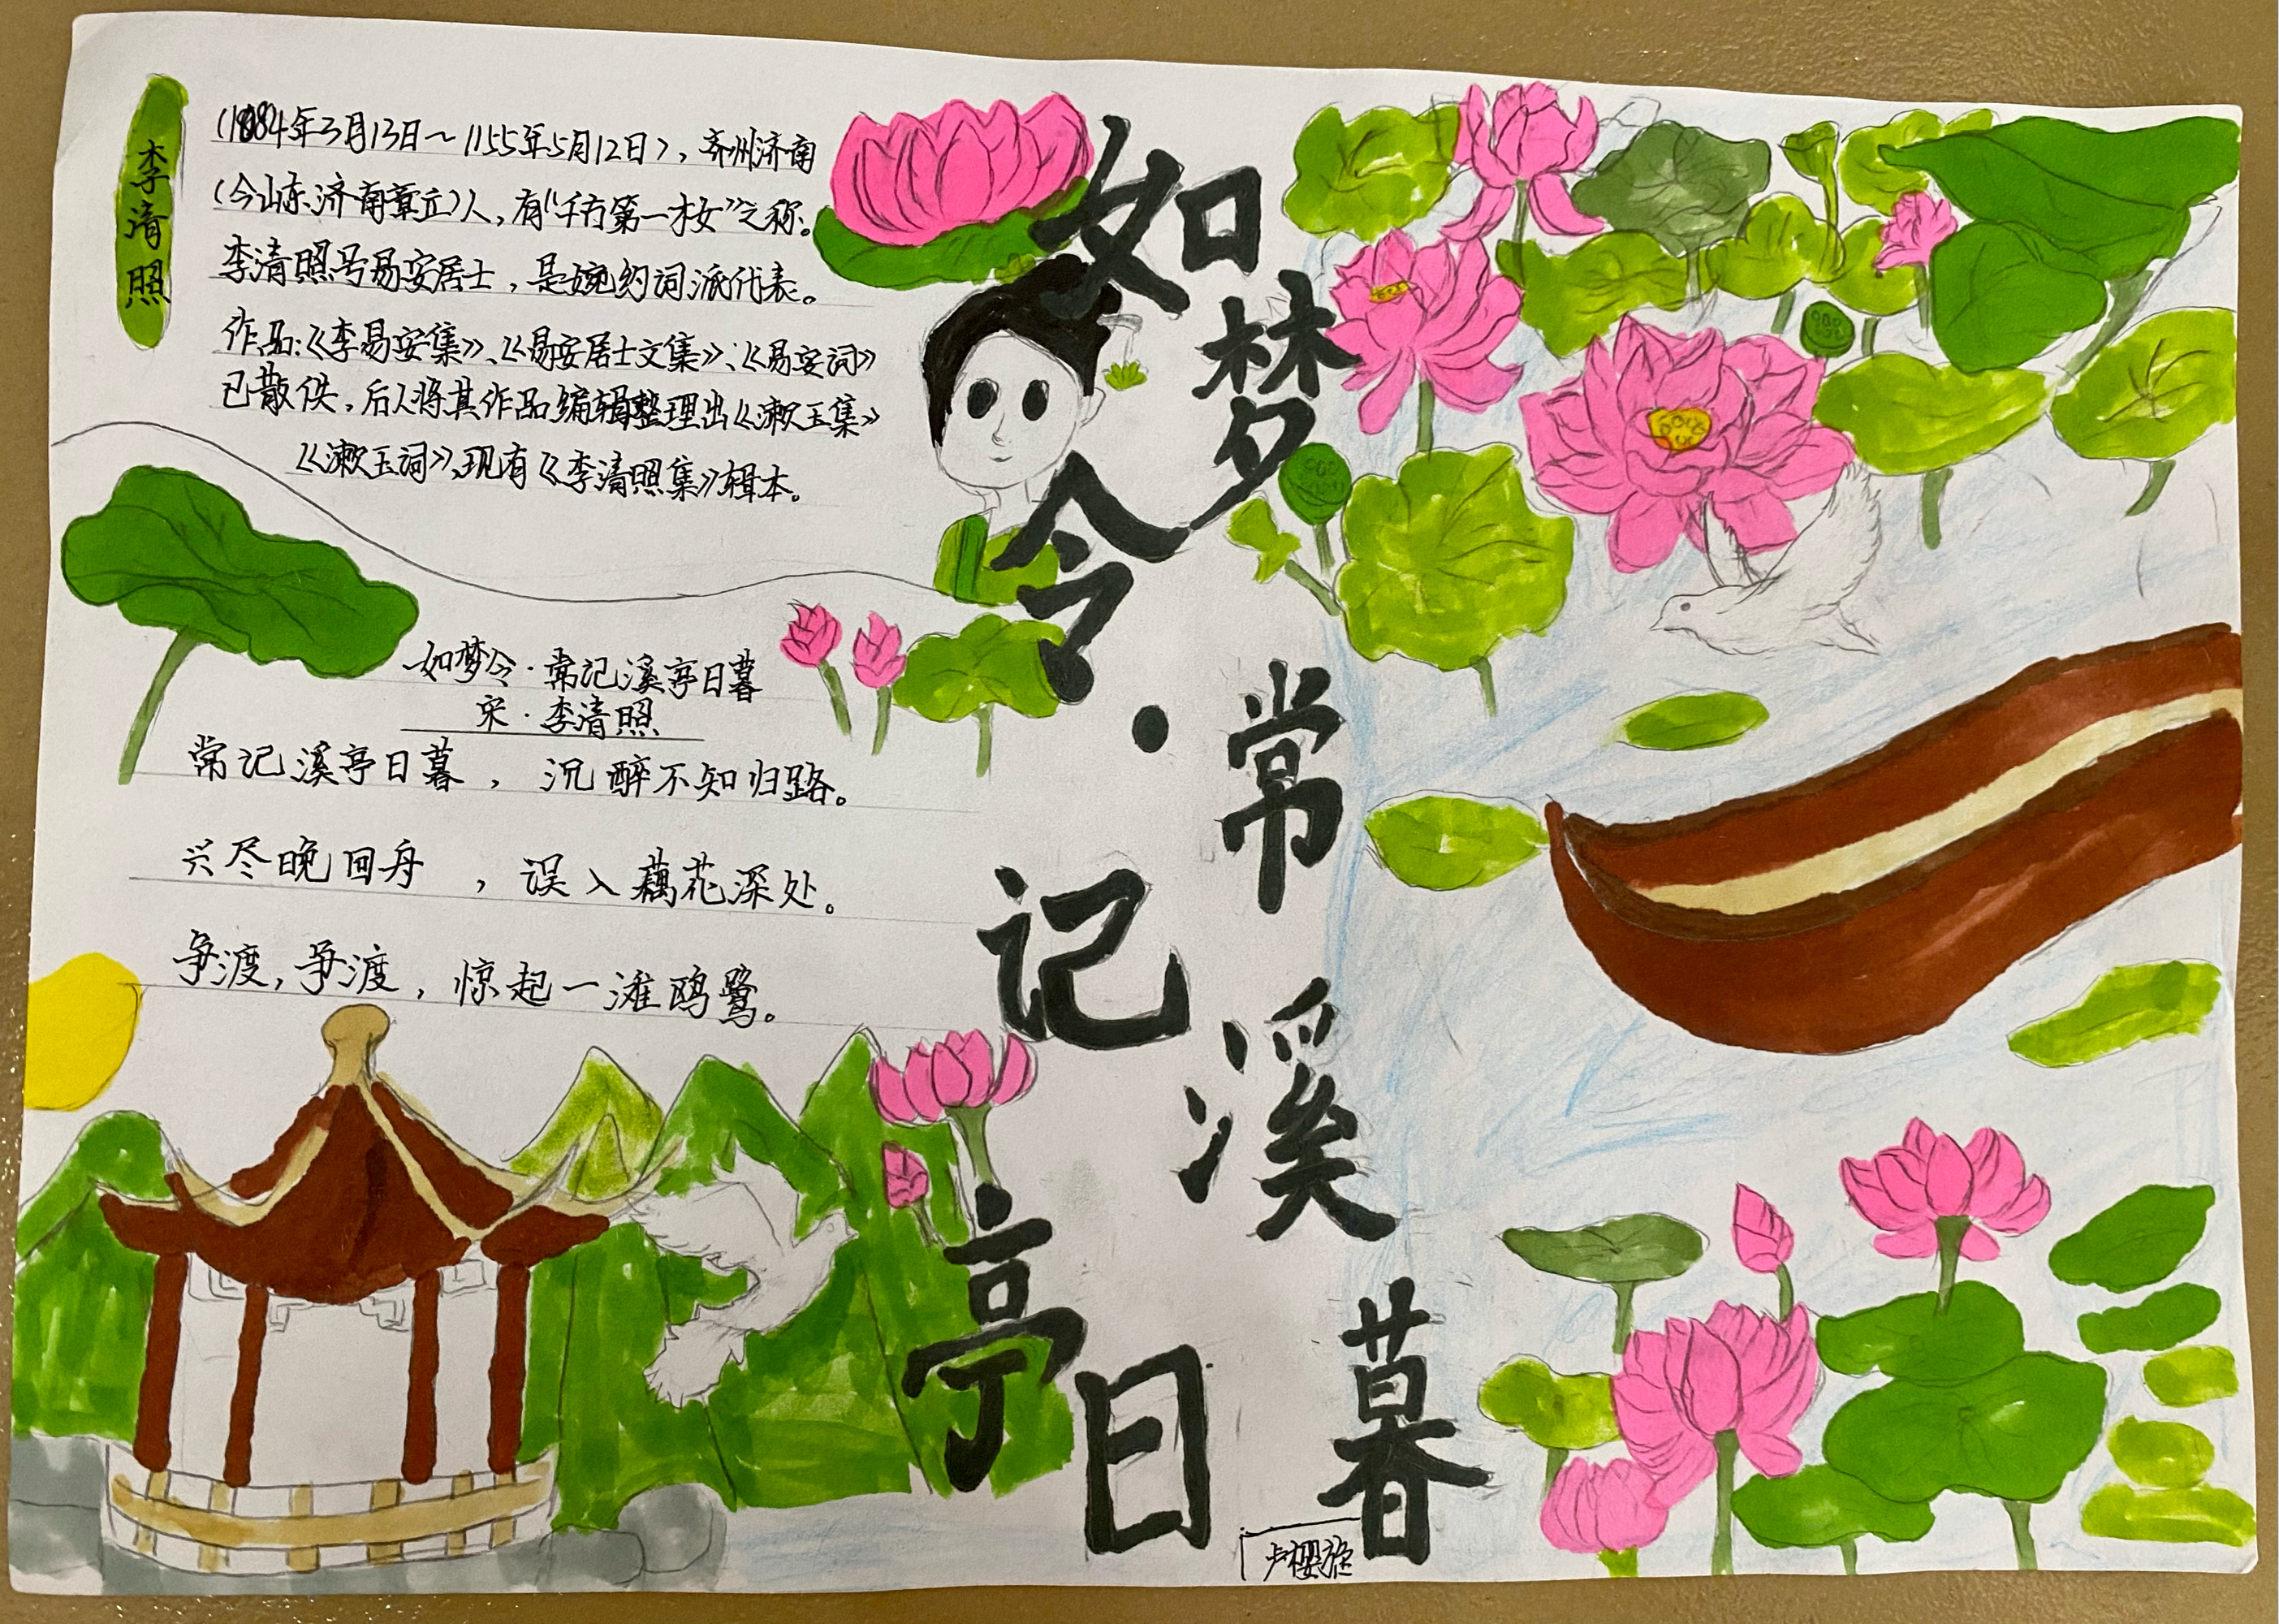 李清照
(1084年3月13日～1155年5月12日)，齐州济南
(今山东济南章丘)人，有“千古第一才女”之称。
李清照号易安居士，是婉约词派代表。
作品：《李易安集》、《易安居士文集》、《易安词》
已散佚，后人将其作品编辑整理出《漱玉集》
《漱玉词》，现有《李清照集》辑本。
如梦令·常记溪亭日暮
宋·李清照
常记溪亭日暮，沉醉不知归路。
兴尽晚回舟，误入藕花深处。
争渡，争渡，惊起一滩鸥鹭。
如梦令·常记溪亭日暮